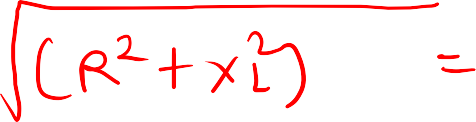 √(R²+XL²) =